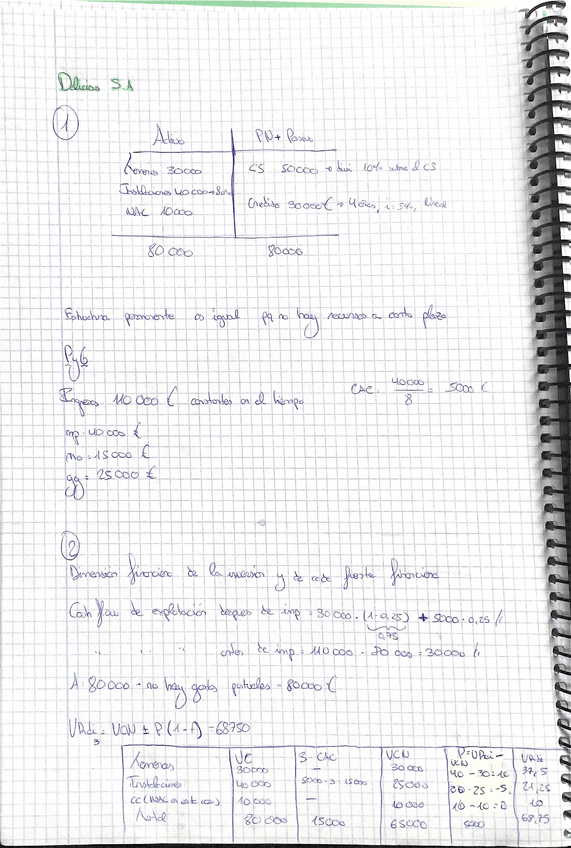 Delicias S.A
1
Activo PN + Pasivo
Terrenos 30000 CS 50000 → divi 10% sobre el CS
Instalaciones 40000 → 8años
Credito 30000€ → 4 años, i=5%, lineal
NAC 10000
80 000 80000
Estructura permanente es igual pq no hay recursos a corto plazo
PyG
Ingresos 110 000 € constantes en el tiempo CAC = 40000/8 = 5000 €
mp = 40 000 €
mo = 15000 €
gg = 25000 €
2
Dimensión financiera de la inversión y de cada fuente financiera
Cash flow de explotación despues de imp = 30 000 · (1-0,25) + 5000 · 0,25 //
0,75
" " " antes de imp = 110000 - 80 000 = 30000 //
A = 80000 - no hay gastos puntuales = 80000 €
VRdi3 = VCN ± P (1-t) = 68750
VC 3·CAC VCN P=VRai-VCN VRdi
Terrenos 30000 — 30000 40-30=10 37,5
Instalaciones 40000 5000·3=15000 25000 20-25=-5 21,25
CC (NAC) 10000 — 10000 10-10=0 10
Total 80000 15000 65000 5000 68,75